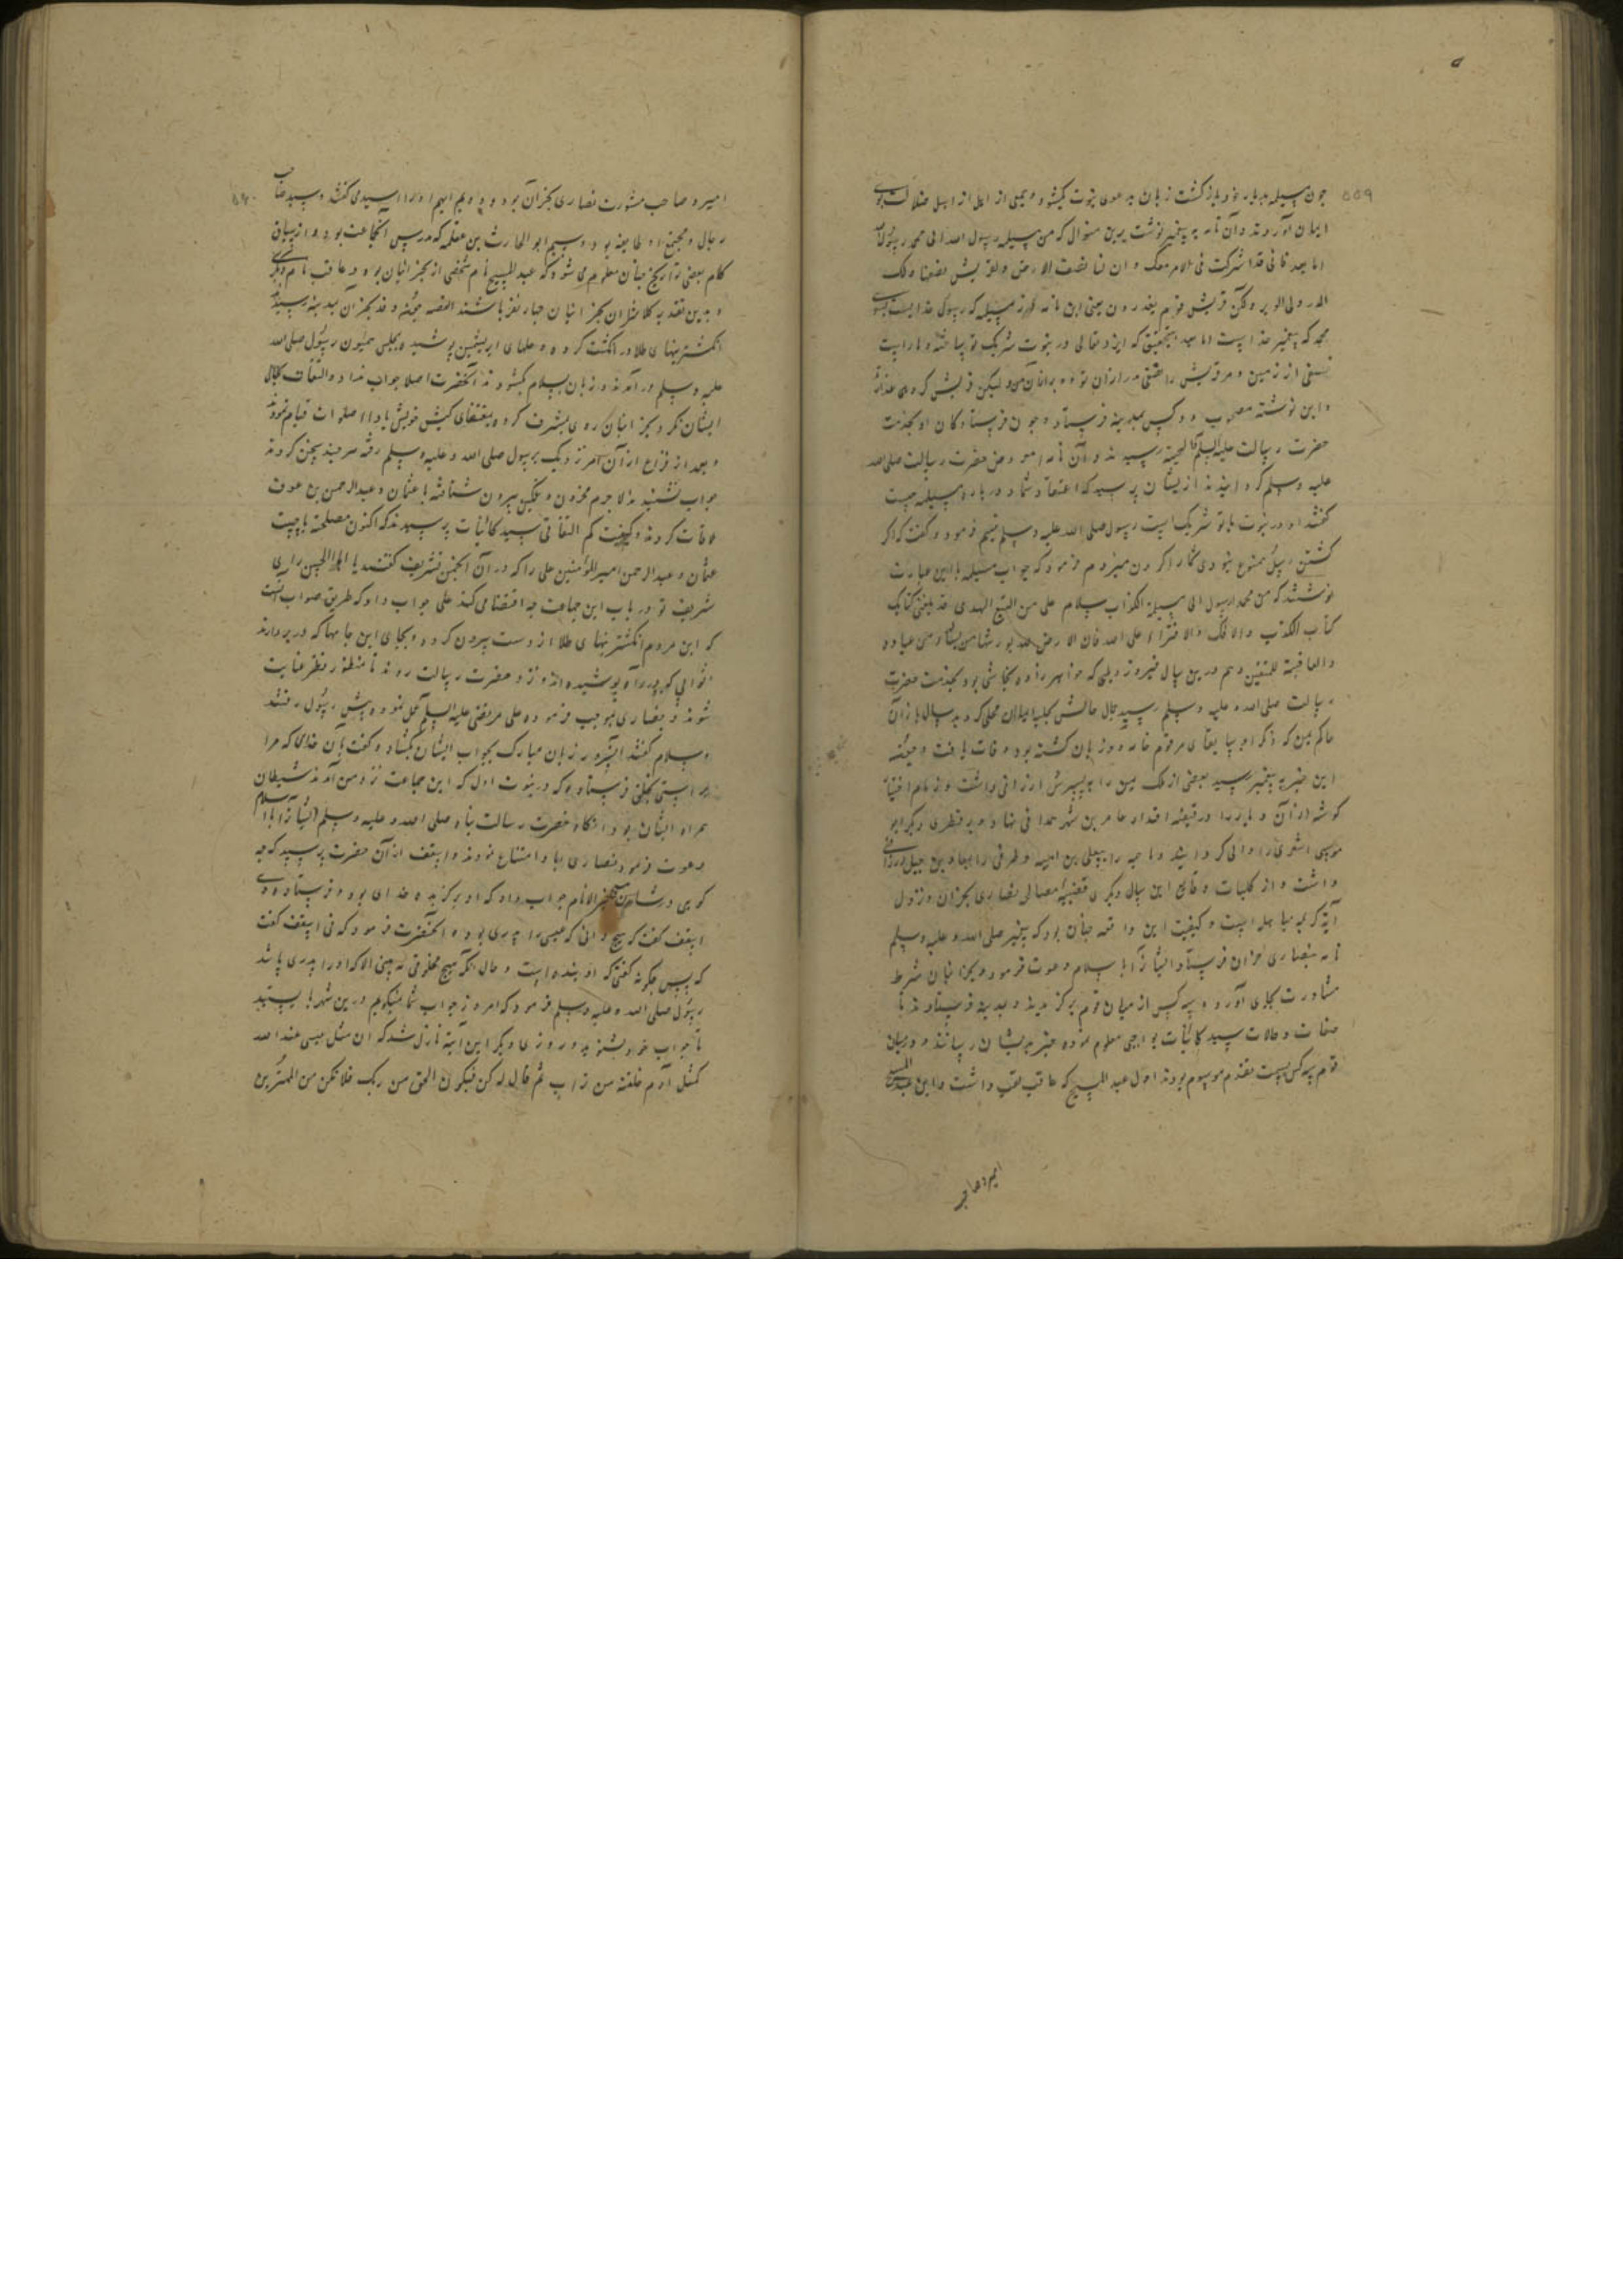 ۵۵۹
چون مسیلمه بدیار خود باز گشت زبان بدعوی نبوت بگشود و جمعی از اهل ضلالت بوی
ایمان آوردند و آن نامه به پیغمبر نوشت برین منوال که من مسیلمه رسول الله الی محمد رسول الله
اما بعد فانی قد اشرکت فی الامر معک و ان لنا نصف الارض و لقریش نصفها و لک
المدر ولی الوبر ولکن قریش قوم یغدرون یعنی این نامه از مسیلمه که رسول خداست بسوی
محمد که پیغمبر خداست اما بعد بتحقیق که ایزد تعالی در نبوت شریک تو ساخته و ما راست
نصفی از زمین و مر قریش را نصفی ولیکن قریش گروهی
و این نوشته مصحوب دو کس بمدینه فرستاد و چون فرستادگان او بخدمت
حضرت رسالت علیه السلام و التحیة رسیدند و آن نامه را معروض حضرت رسالت صلی الله
علیه وسلم گردانیدند از ایشان پرسید که اعتقاد شما در باره مسیلمه چیست
گفتند او در نبوت با تو شریک است رسول صلی الله علیه وسلم تبسم فرمود و گفت که اگر
کشتن رسل ممنوع نبودی شما را گردن میزدم و فرمود که جواب مسیلمه باین عبارت
نوشتند که من محمد رسول الله الی مسیلمة الکذاب سلام علی من اتبع الهدی قد بلغنی کتابک
کتاب الکذب والافک والافتراء علی الله فان الارض لله یورثها من یشاء من عباده
والعاقبة للمتقین و هم درین سال فیروز دیلمی که خواهرزاده نجاشی بود بخدمت حضرت
رسالت صلی الله علیه وسلم رسید جمال حالش بحلیه ایمان محلی گردید سال باذان
حاکم یمن که ذکر او سابقا مرقوم خامه دو زبان گشته بود وفات یافت و چون
این خبر به پیغمبر رسید بعضی از ملک یمن را به پسرش ارزانی داشت و زمام اختیار
گوشه از آن دیار را در قبضه اقتدار عامر بن شهر همدانی نهاد و بر قطری دیگر ابو
موسی اشعری را والی گردانید و ناحیه را بیعلی بن امیه و طرفی را بمعاذ بن جبل ارزانی
داشت و از کلیات وقایع این سال دیگری قضیه مصالحه نصاری نجران و نزول
آیه کریمه مباهله است و کیفیت این واقعه چنان بود که پیغمبر صلی الله علیه وسلم
نامه بنصاری نجران فرستاد و ایشان را باسلام دعوت فرمود و نجرانیان شرط
مشاورت بجای آورده سه کس از میان قوم برگزیدند و بمدینه فرستادند تا
صفات و حالات سید کائنات بواجبی معلوم نموده خبر بدیشان رسانند و درمیان
قوم سه کس بسمت تقدم موسوم بودند اول عبد المسیح که عاقب لقب داشت و این عبد المسیح
امیر و صاحب
امیر و صاحب مشورت نصاری نجران بود و دویم ایهم او را سید می گفتند و سید صاحب
رحال و مجتمع آن طایفه بود و سیم ابو الحارث بن علقمه که مدرس آنجماعت بود و از سیاق
کلام بعضی تواریخ چنان معلوم می شود که عبد المسیح نام شخصی از نجرانیان بود و عاقب نام دیگری
و بدین تقدیر کلانتران نجرانیان چهار نفر باشند القصه چون وفد نجران بمدینه رسیدند
انگشتریهای طلا در انگشت کرده و جامهای ابریشمین پوشیده بمجلس همیون رسول صلی الله
علیه وسلم درآمدند و زبان بسلام گشودند آنحضرت اصلا جواب نداد و التفات بحال
ایشان نکرد نجرانیان روی بمشرق کرده بمقتضای کیش خویش باداء صلوات قیام نمودند
و بعد از فراغ از آن امر نزدیک رسول صلی الله علیه وسلم رفته هر چند سخن کردند
جواب نشنیدند لاجرم محزون و غمگین بیرون شتافته با عثمان و عبد الرحمن بن عوف
ملاقات کردند و کیفیت کم التفاتی سید کائنات پرسیدند که اکنون مصلحت ما چیست
عثمان و عبد الرحمن امیر المؤمنین علی را که در آن انجمن تشریف گفتند یا ابا الحسن رای
شریف تو در باب این جماعت چه اقتضا می کند علی جواب داد که طریق صواب آنست
که این مردم انگشتریهای طلا از دست بیرون کرده و بجای این جامها که در بر دارند
اثوابی که در راه پوشیده اند نزد حضرت رسالت روند تا منظور نظر عنایت
شوند و نصاری بموجب فرموده علی مرتضی علیه السلام عمل نموده پیش رسول رفتند
و سلام گفتند آن سرور زبان مبارک بجواب ایشان بگشاد و گفت بآن خدای که مرا
براستی بخلق فرستاده که در نوبت اول که این جماعت نزد من آمدند شیطان
همراه ایشان بود آنگاه حضرت رسالت پناه صلی الله علیه وسلم ایشان را باسلام
دعوت فرمود نصاری ابا و امتناع نمودند و اسقف از آن حضرت پرسید که چه
گوی در شان مسیح خیر الانام جواب داد که او برگزیده خدای بود و فرستاده وی
اسقف گفت که هیچ دانی که عیسی را پدری بوده آنحضرت فرمود که نی اسقف گفت
که پس چگونه گفتی که او بنده است و حال آنکه هیچ مخلوقی نه بینی الا که او را پدری باشد
رسول صلی الله علیه وسلم فرمود که امروز جواب شما نمیگویم درین شهر باشید
تا جواب خود بشنوید و روزی دیگر این آیه نازل شد که ان مثل عیسی عند الله
کمثل آدم خلقه من تراب ثم قال له کن فیکون الحق من ربک فلا تکن من الممترین